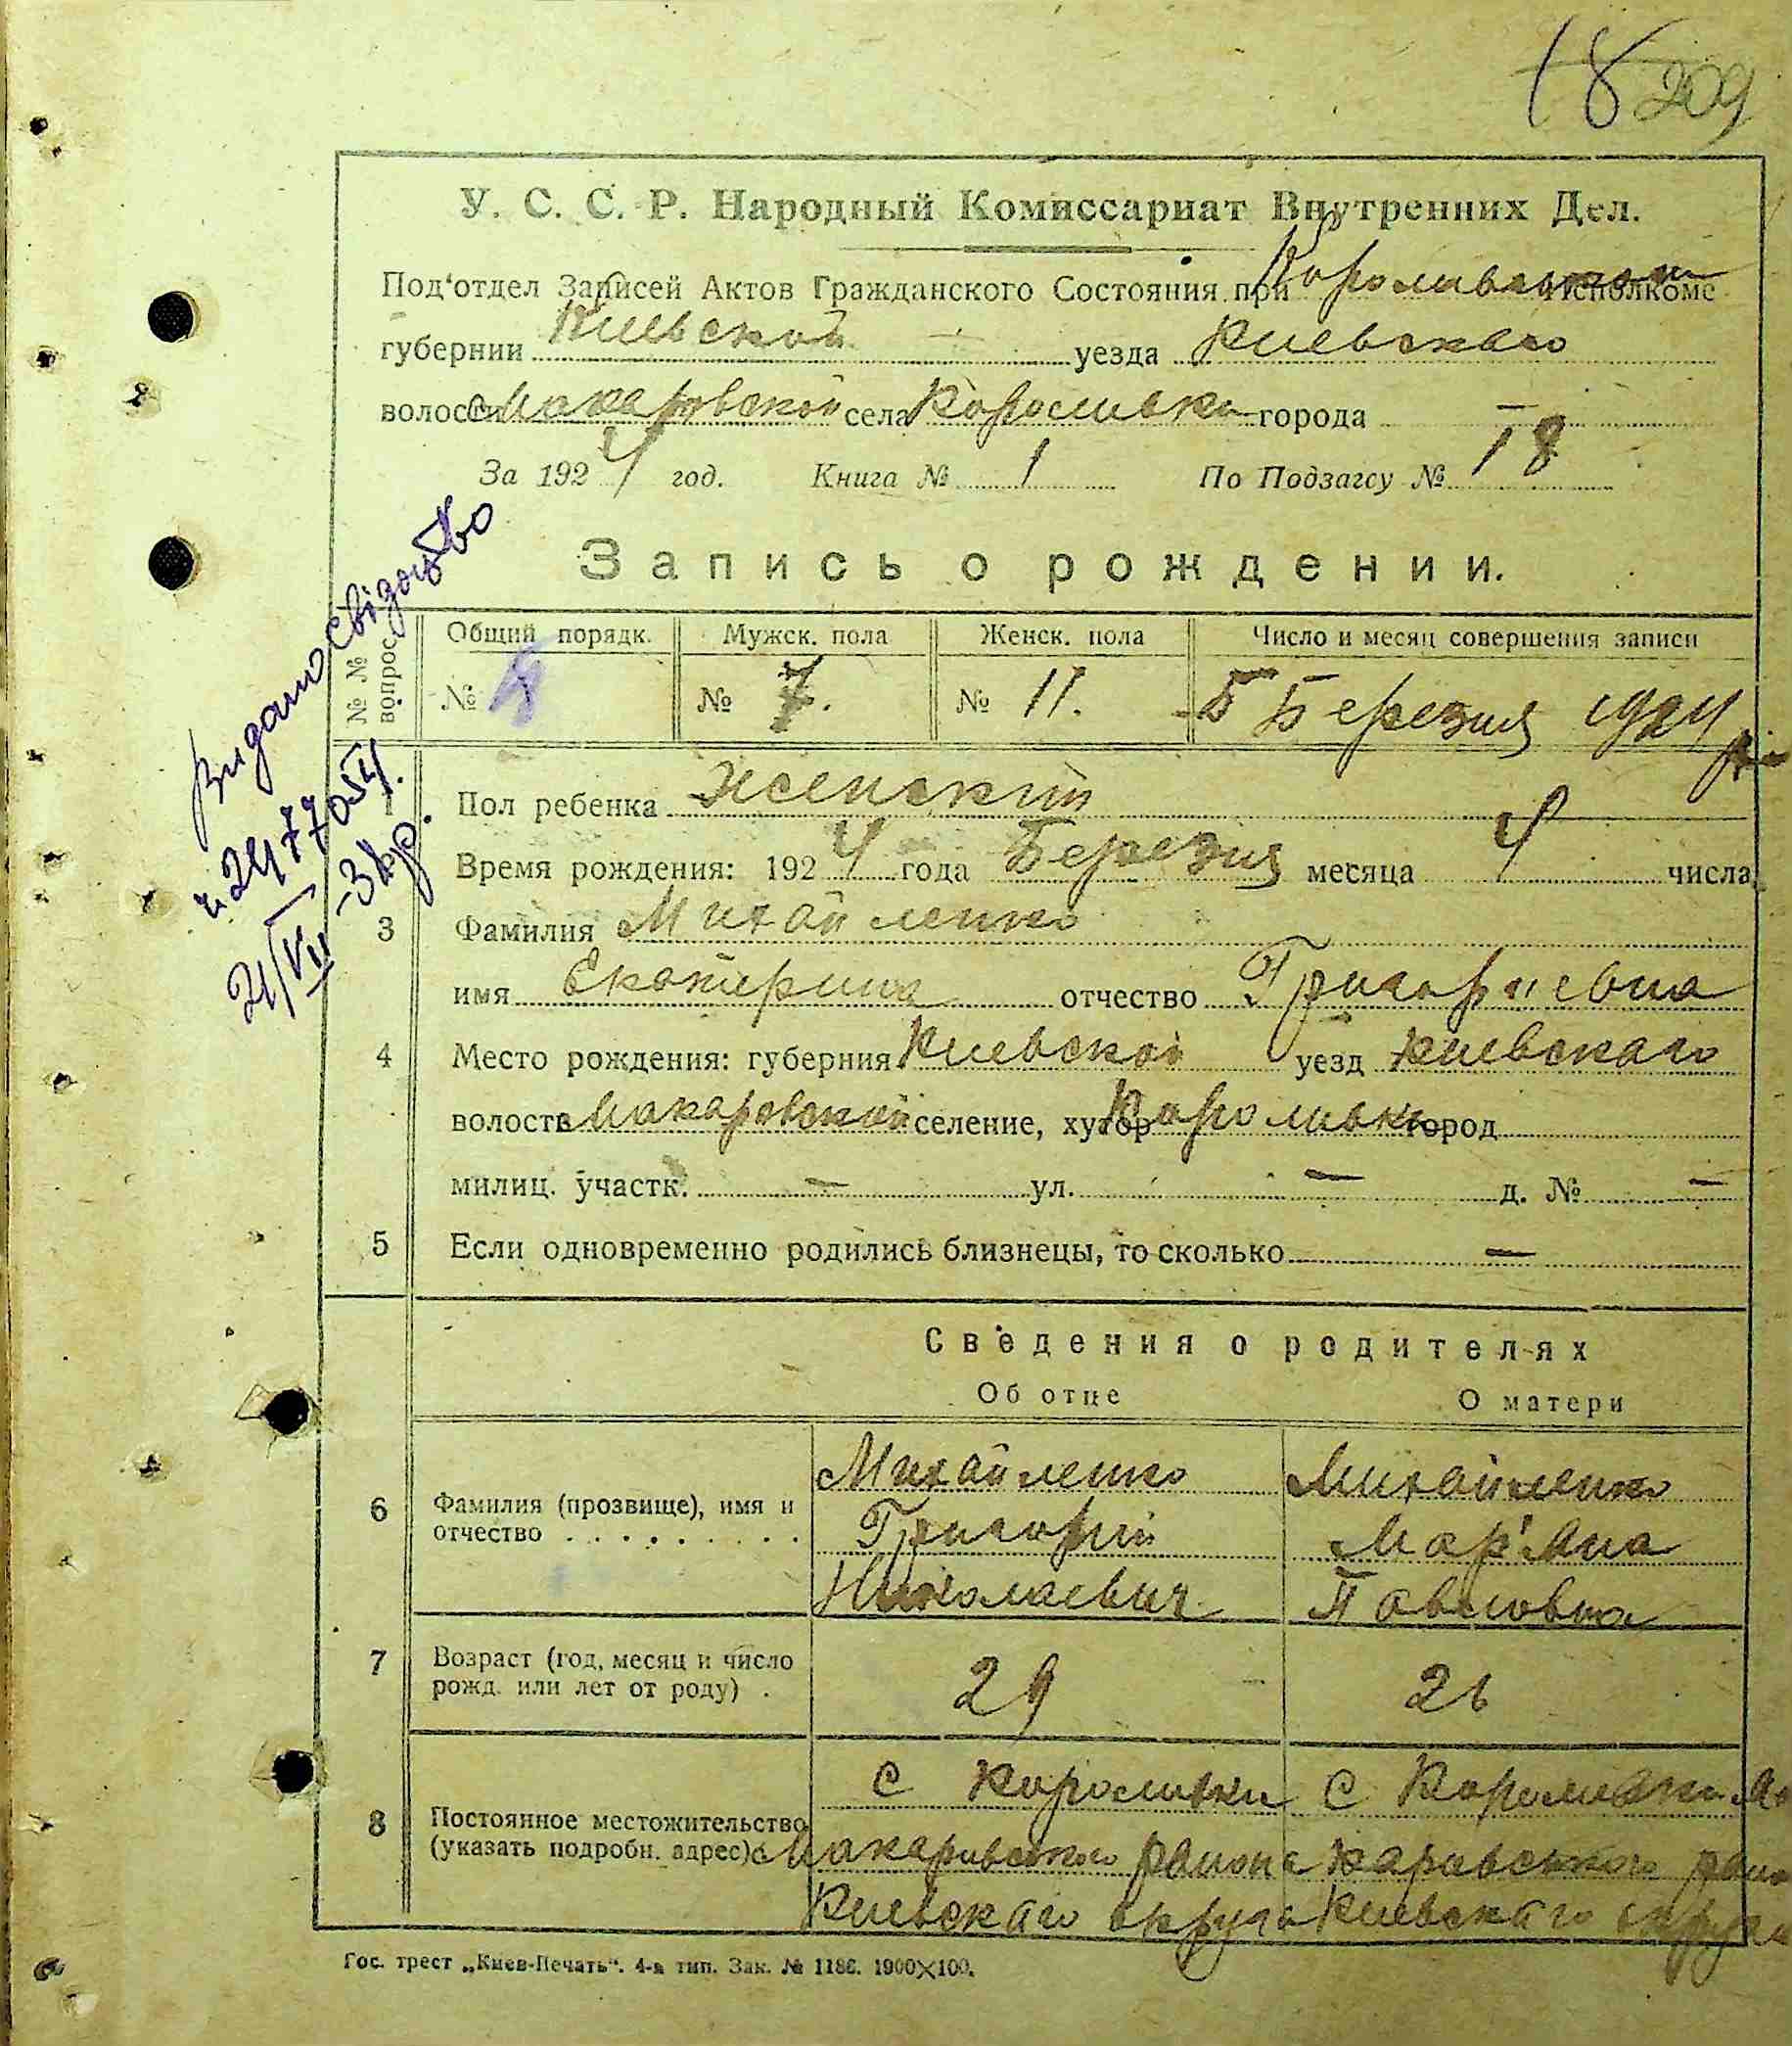 18 209
У. С. С. Р. Народный Комиссариат Внутренних Дел.
Под'отдел Записей Актов Гражданского Состояния при Исполкоме
губернии Киевской уезда Киевскаго
волости Макаровской села Короливка города —
За 1924 год. Книга № 1 По Подзагсу № 18
Запись о рождении.
№ № вопрос.
Общий порядк. Мужск. пола Женск. пола Число и месяц совершения записи
№ № 7. № 11. 5 Березня 1924 р
1 Пол ребенка женский
Время рождения: 1924 года Березня месяца 4 числа
3 Фамилия Михайленко
имя Екатерина отчество Григориевна
4 Место рождения: губерния Киевской уезд Киевскаго
волость Макаровской селение, хутор Короливка город
милиц. участк. — ул. — д. № —
5 Если одновременно родились близнецы, то сколько —
Сведения о родителях
Об отце О матери
6 Фамилия (прозвище), имя и
отчество . . . . . . . . .
Михайленко Михайленко
Григорий Мар'яна
Николаевич Павловна
7 Возраст (год, месяц и число
рожд. или лет от роду) .
29 26
8 Постоянное местожительство
(указать подробн. адрес)
С Короливки С Короливки Ма
Макаривского района каривського райо
Киевскаго округа Киевскаго округа
Гос. трест „Киев-Печать". 4-я тип. Зак. № 1186. 1900×100.
Видано свідоцтво
ч. 2477054.
21/VII -34р.